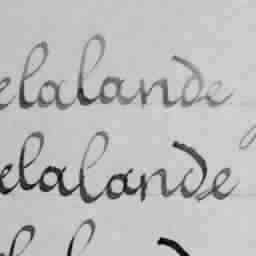 elalande
elalande